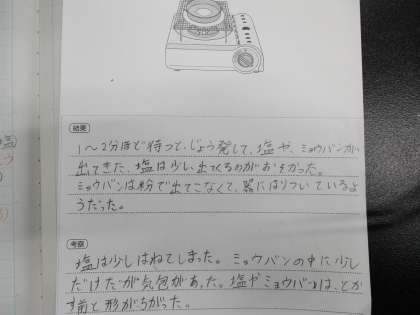 結果
1〜2分ほど待つと、じょう発して、塩や、ミョウバンが
出てきた、塩は少し、出てくるのがおそかった。
ミョウバンは粉で出てこなくて、器にはりついているよ
うだった。
考察
塩は少しはねてしまった。ミョウバンの中に少し
だけだが気泡があった。塩やミョウバンは、とか
す前と形がちがった。